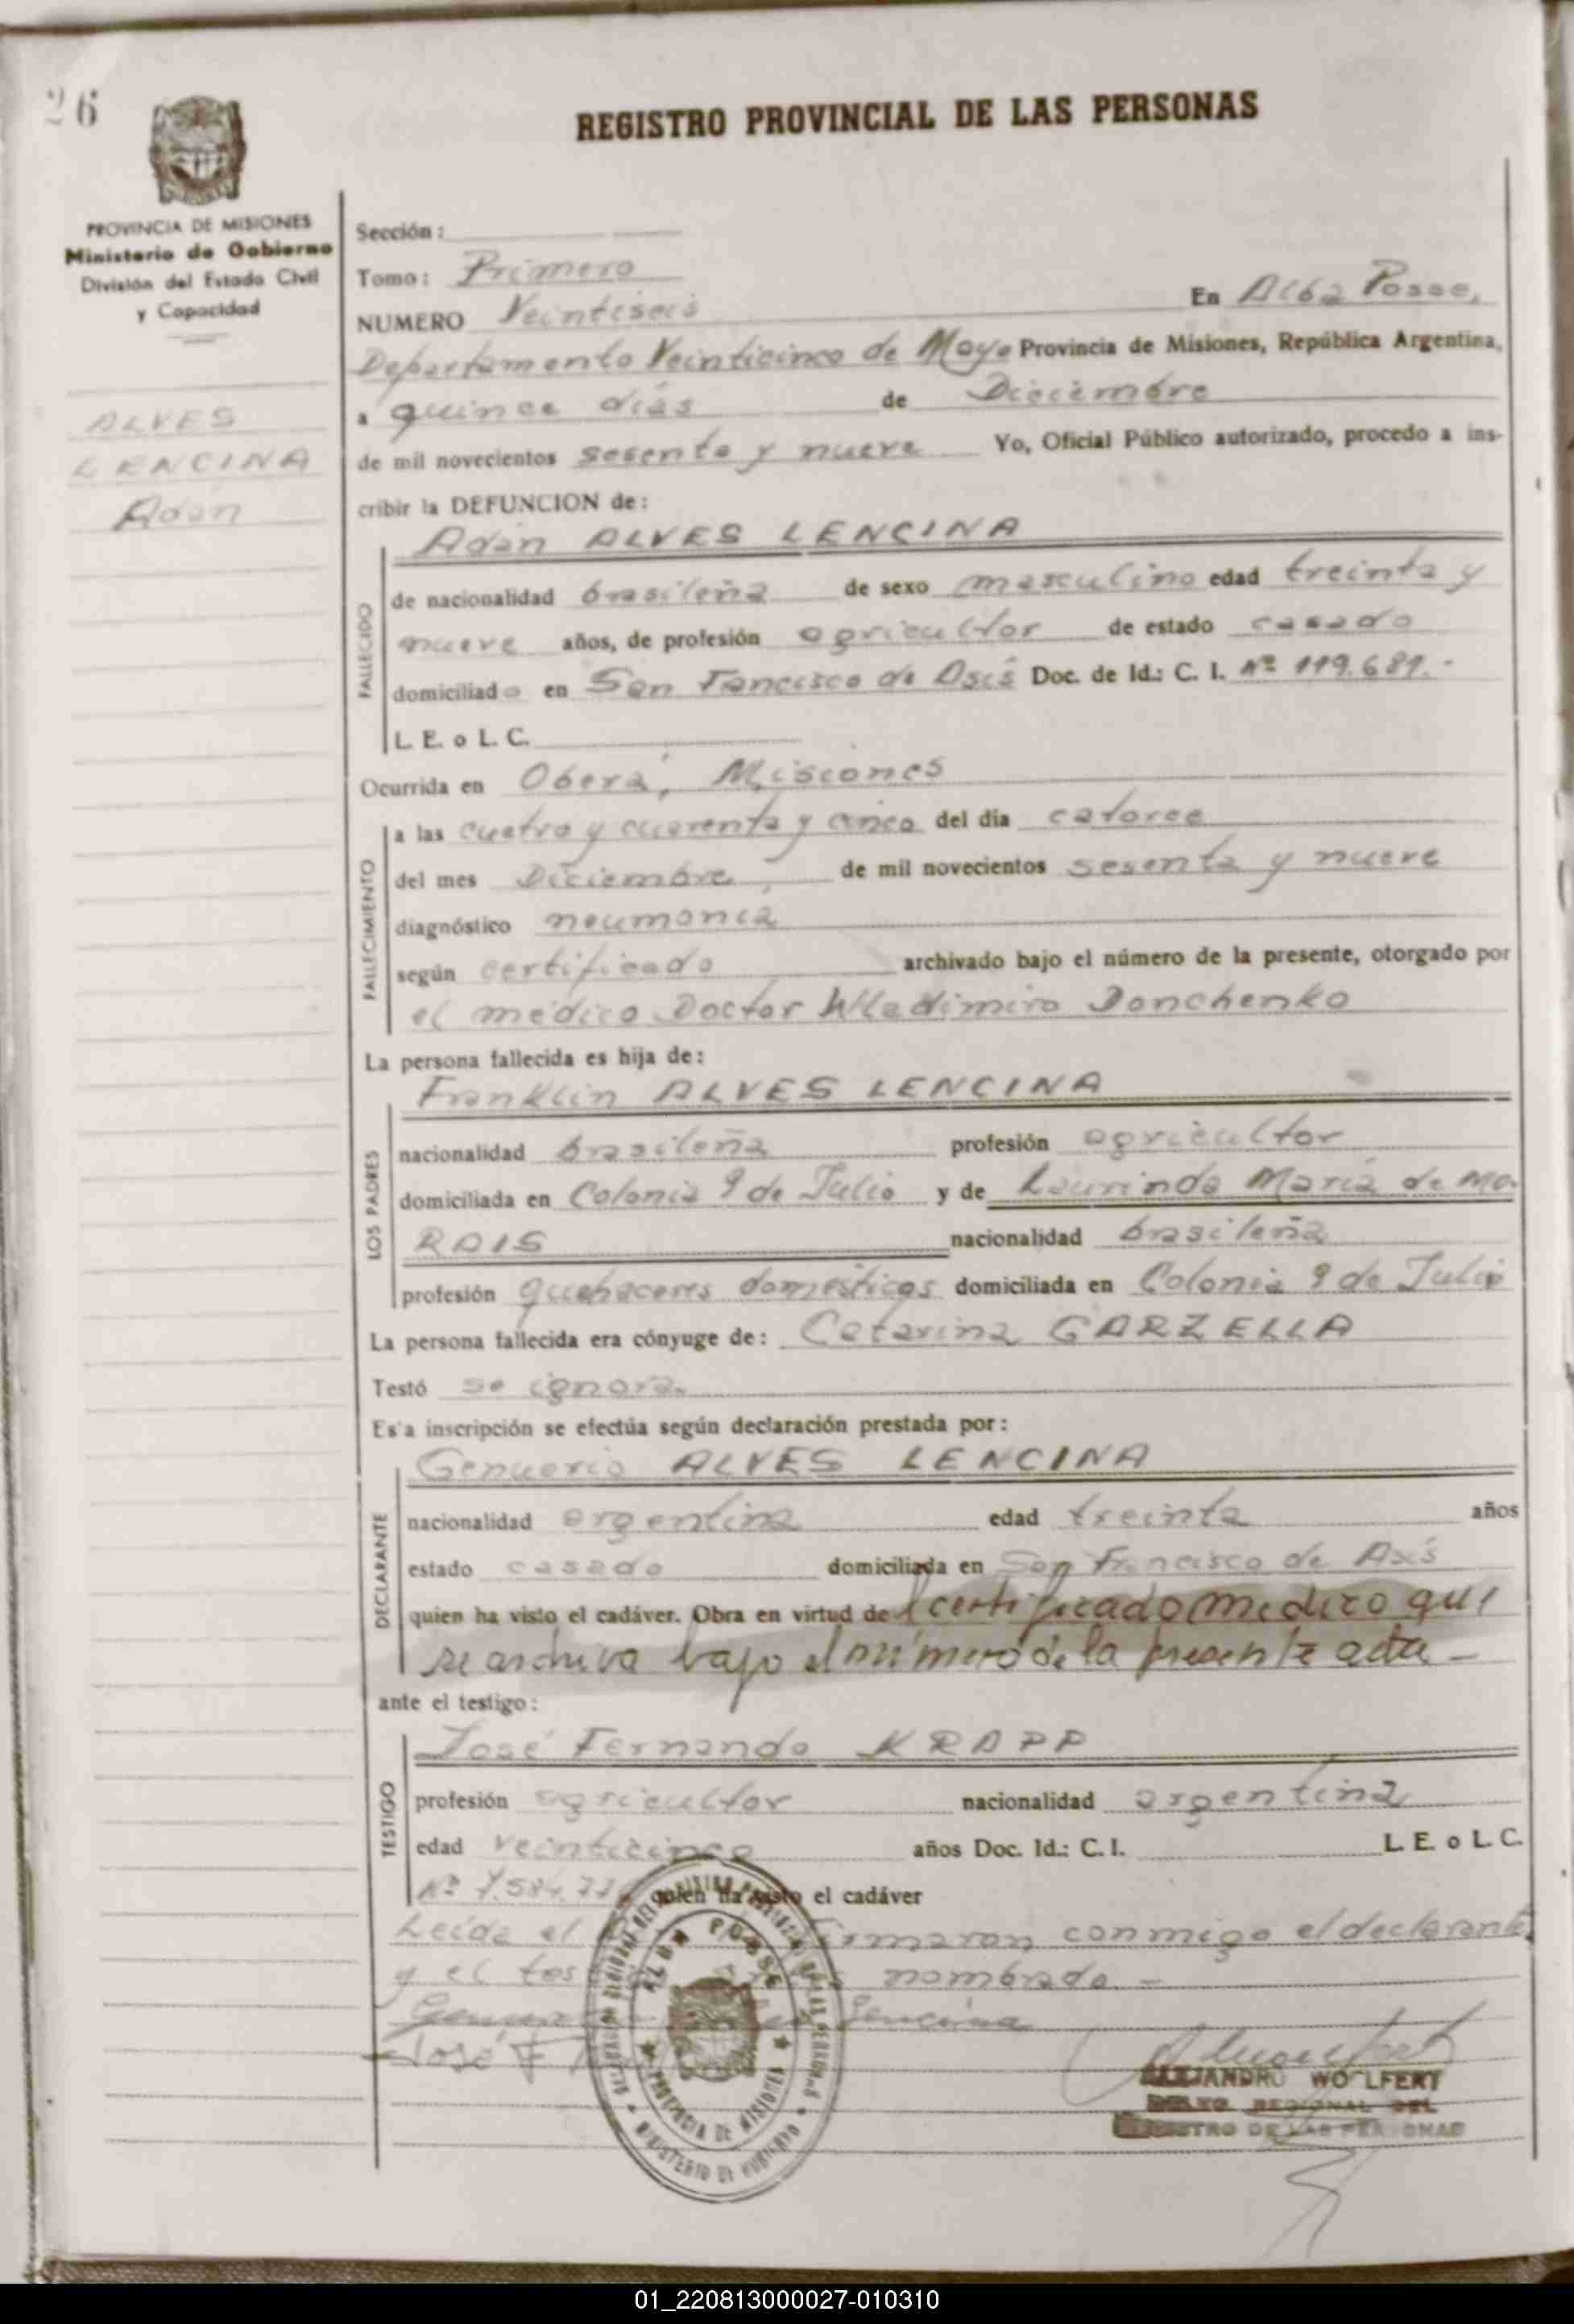 26
REGISTRO PROVINCIAL DE LAS PERSONAS
PROVINCIA DE MISIONES
Ministerio de Gobierno
División del Estado Civil
y Capacidad
ALVES
LENCINA
Adán
Sección:
Tomo: Primero
En Alba Posse,
NUMERO Veintiseis
Departamento Veinticinco de Mayo Provincia de Misiones, República Argentina,
a quince días de Diciembre
de mil novecientos sesenta y nueve Yo, Oficial Público autorizado, procedo a ins-
cribir la DEFUNCION de:
Adán ALVES LENCINA
FALLECIDO
de nacionalidad brasileña de sexo masculino edad treinta y
nueve años, de profesión agricultor de estado casado
domiciliado en San Fancisco de Asís Doc. de Id.: C. I. Nº 119.689.-
L. E. o L. C.
Ocurrida en Oberá, Misiones
FALLECIMIENTO
a las cuatro y cuarenta y cinco del día catorce
del mes Diciembre, de mil novecientos sesenta y nueve
diagnóstico neumonía
según certificado archivado bajo el número de la presente, otorgado por
el médico Doctor Wladimiro Donchenko
La persona fallecida es hija de:
Franklin ALVES LENCINA
LOS PADRES
nacionalidad brasileña profesión agricultor
domiciliada en Colonia 9 de Julio y de Laurinda María de MO-
RAIS nacionalidad brasileña
profesión quehaceres domésticos domiciliada en Colonia 9 de Julio
La persona fallecida era cónyuge de: Catarina GARZELLA
Testó se ignora.
Es'a inscripción se efectúa según declaración prestada por:
Genuario ALVES LENCINA
DECLARANTE
nacionalidad argentina edad treinta años
estado casado domiciliada en San Francisco de Asís
quien ha visto el cadáver. Obra en virtud del certificado medico que
se archiva bajo el número de la presente acta -
ante el testigo:
José Fernando KRAPP
TESTIGO
profesión agricultor nacionalidad argentina
edad veinticinco años Doc. Id.: C. I. L. E. o L. C.
Nº 7.584.77 quien ha visto el cadáver
Leída el firmaron conmigo el declarante
y el tes nombrado -
Lencina
José F
ALBA POSSE
PROVINCIA DE MISIONES
MINISTERIO DE GOBIERNO
ALEJANDRO WOLFERT
DELEG. REGIONAL DEL
REGISTRO DE LAS PERSONAS
01_220813000027-010310